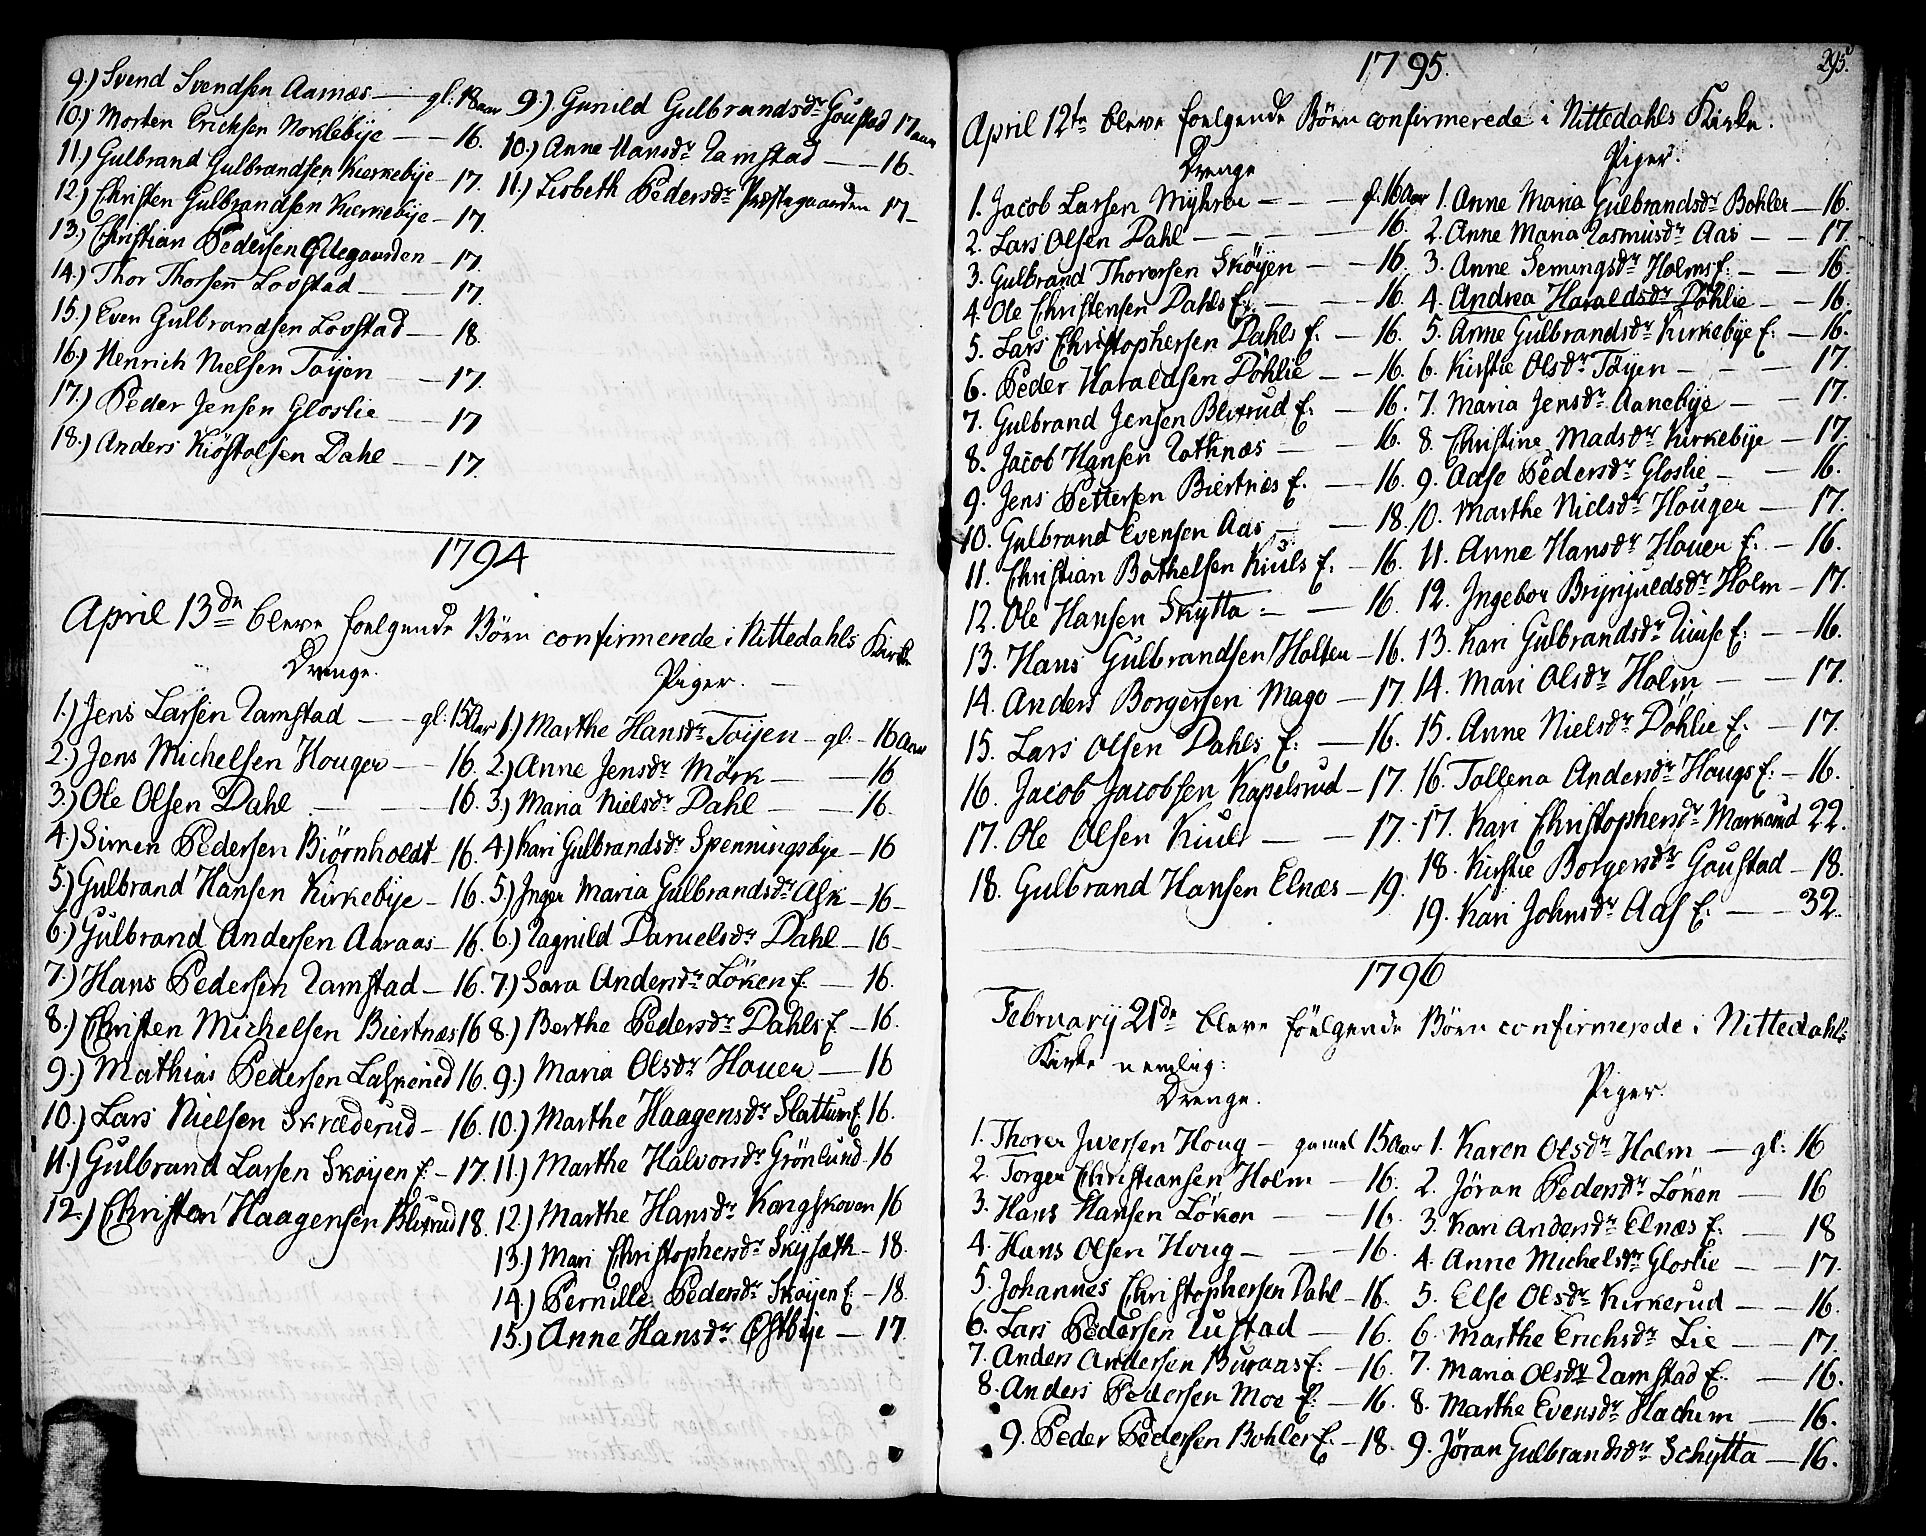 9.) Svend Svendsen Aamæs — gl: 18 aar
10.) Morten Ericksen Noklebye — 16.
11.) Gulbrand Gulbrandsen Kierkebije — 17.
12.) Christen Gulbrandsen Kierkebije — 17.
13.) Christian Pedersen — 17.
14.) Thor Thorsen Lovstad — 17.
15.) Even Gulbrandsen Lovstad — 18.
16.) Henrich Nielsen Töijen — 17.
17.) Peder Jensen Gloslie — 17
18.) Anders Kiöstolsen Dahl — 17.
9.) Gunild Gulbrandsdr Goustad 17 aar
10.) Anne Hansdr Ramstad — 16.
11.) Lisbeth Pedersdr Præstegaarden 17 —
1794
April 13de bleve foelgende Börn confirmerede i Nittedahls Kirke
Drenge.
1.) Jens Larsen Ramstad — gl: 15 Aar
2.) Jens Michelsen Houger — 16.
3.) Ole Olsen Dahl — 16.
4.) Simen Pedersen Biörnholdt — 16.
5.) Gulbrand Hansen Kirkebije — 16.
6.) Gulbrand Andersen Aaraas — 16.
7.) Hans Pedersen Ramstad — 16.
8.) Christen Michelsen Biertnæs 16
9.) Mathias Pedersen Laskerud 16.
10.) Lars Nielsen Skræderud — 16.
11.) Gulbrand Larsen Skøyen E. — 17.
12.) Christen Haagensen Blixrud 18.
Piger.
1.) Marthe Hansdr Töijen — gl: — 16 Aar
2.) Anne Jensdr Mörk — 16
3.) Maria Nielsdr Dahl — 16.
4.) Kari Gulbrandsdr Spenningsbye — 16
5.) Inger Maria Gulbrandsdr Ask — 16 —
6.) Ragnild Danielsdr Dahl — 16 —
7.) Sara Andersdr Löken E. — 16.
8.) Berthe Pedersdr Dahls E. — 16.
9.) Maria Olsdr Hauer — 16
10.) Marthe Haagensdr Slattum E. 16.
11.) Marthe Halvorsdr Grönlund 16
12.) Marthe Hansdr Kongskoven 16
13.) Mari Christophersdr Skÿsæth — 18.
14.) Pernille Pedersdr Skøyen E. — 18.
15.) Anne Hansdr Østbije — 17.
295
1795.
April 12te bleve foelgende Börn confirmerede i Nittedahls Kirke.
Drenge
1. Jacob Larsen Mÿhrer — gl. 16 Aar
2. Lars Olsen Dahl — 16.
3. Gulbrand Thorersen Sköÿen — 16.
4. Ole Christensen Dahls E. — 16.
5. Lars Christophersen Dahls E. — 16.
6. Peder Haraldsen Döhlie — 16.
7. Gulbrand Jensen Blixrud E. — 16.
8. Jacob Hansen Rothnæs — 16.
9. Jens Pettersen Biertnæs E. — 16.
10. Gulbrand Evensen Aas — 18.
11. Christian Bothelsen Kiuls E. — 16.
12. Ole Hansen Skytta — 16.
13. Hans Gulbrandsen Holter — 16.
14. Anders Borgersen Mago — 17
15. Lars Olsen Dahls E. — 16.
16. Jacob Jacobsen Kapelsrud — 17.
17. Ole Olsen Kiuls — 17
18. Gulbrand Hansen Elnæs — 19.
Piger.
1. Anne Maria Gulbrandsdr Bohler — 16.
2. Anne Maria Rasmusdr Aas — 17.
3. Anne Semingsdr Holms E. — 16.
4. Andrea Haraldsdr Döhlie — 16.
5. Anne Gulbrandsdr Kirkebije E. — 16.
6. Kirstie Olsdr Töyen — 17.
7. Maria Jensdr Aanebije — 17.
8. Christine Madsdr Kirkebije — 17.
9. Aase Pedersdr Gloslie — 16.
10. Marthe Nielsdr Houger — 17.
11. Anne Hansdr Hauer E. — 16.
12. Ingebor Brijnjuldsdr Holm — 17.
13. Kari Gulbrandsdr E. — 16.
14. Mari Olsdr Holm — 17.
15. Anne Nielsdr Döhlie E. — 17.
16. Tollena Andersdr Hougs E. — 16.
17. Kari Christophersdr Markerud 22.
18. Kirstie Borgersdr Goustad — 18.
19. Kari Johnsdr Aas E. — 32.
1796
Februarÿ 21de bleve föelgende Börn confirmerede i Nittedahls
Kirke nemlig:
Drenge.
1. Thorer Iwersen Houg — gamel 15 Aar
2. Torger Christiansen Holm — 16.
3. Hans Hansen Löken — 16.
4. Hans Olsen Houg — 16.
5. Johannes Christophersen Dahl — 16.
6. Lars Pedersen Rustad — 16.
7. Anders Andersen Buraas E. — 16.
8. Anders Pedersen Moe E. — 16.
9. Peder Pedersen Bohler E. — 18.
Piger.
1. Karen Olsdr Holm — gl: 16
2. Jöran Pedersdr Löken — 16
3. Kari Andersdr Elnæs E. — 18
4. Anne Michelsdr Gloslie — 17.
5. Else Olsdr Kirkerud — 16.
6. Marthe Erichsdr Lie — 17.
7. Maria Olsdr Ramstad E. — 16.
8. Marthe Evensdr Hachim — 16.
9. Jöran Gulbrandsdr Schytta — 16.